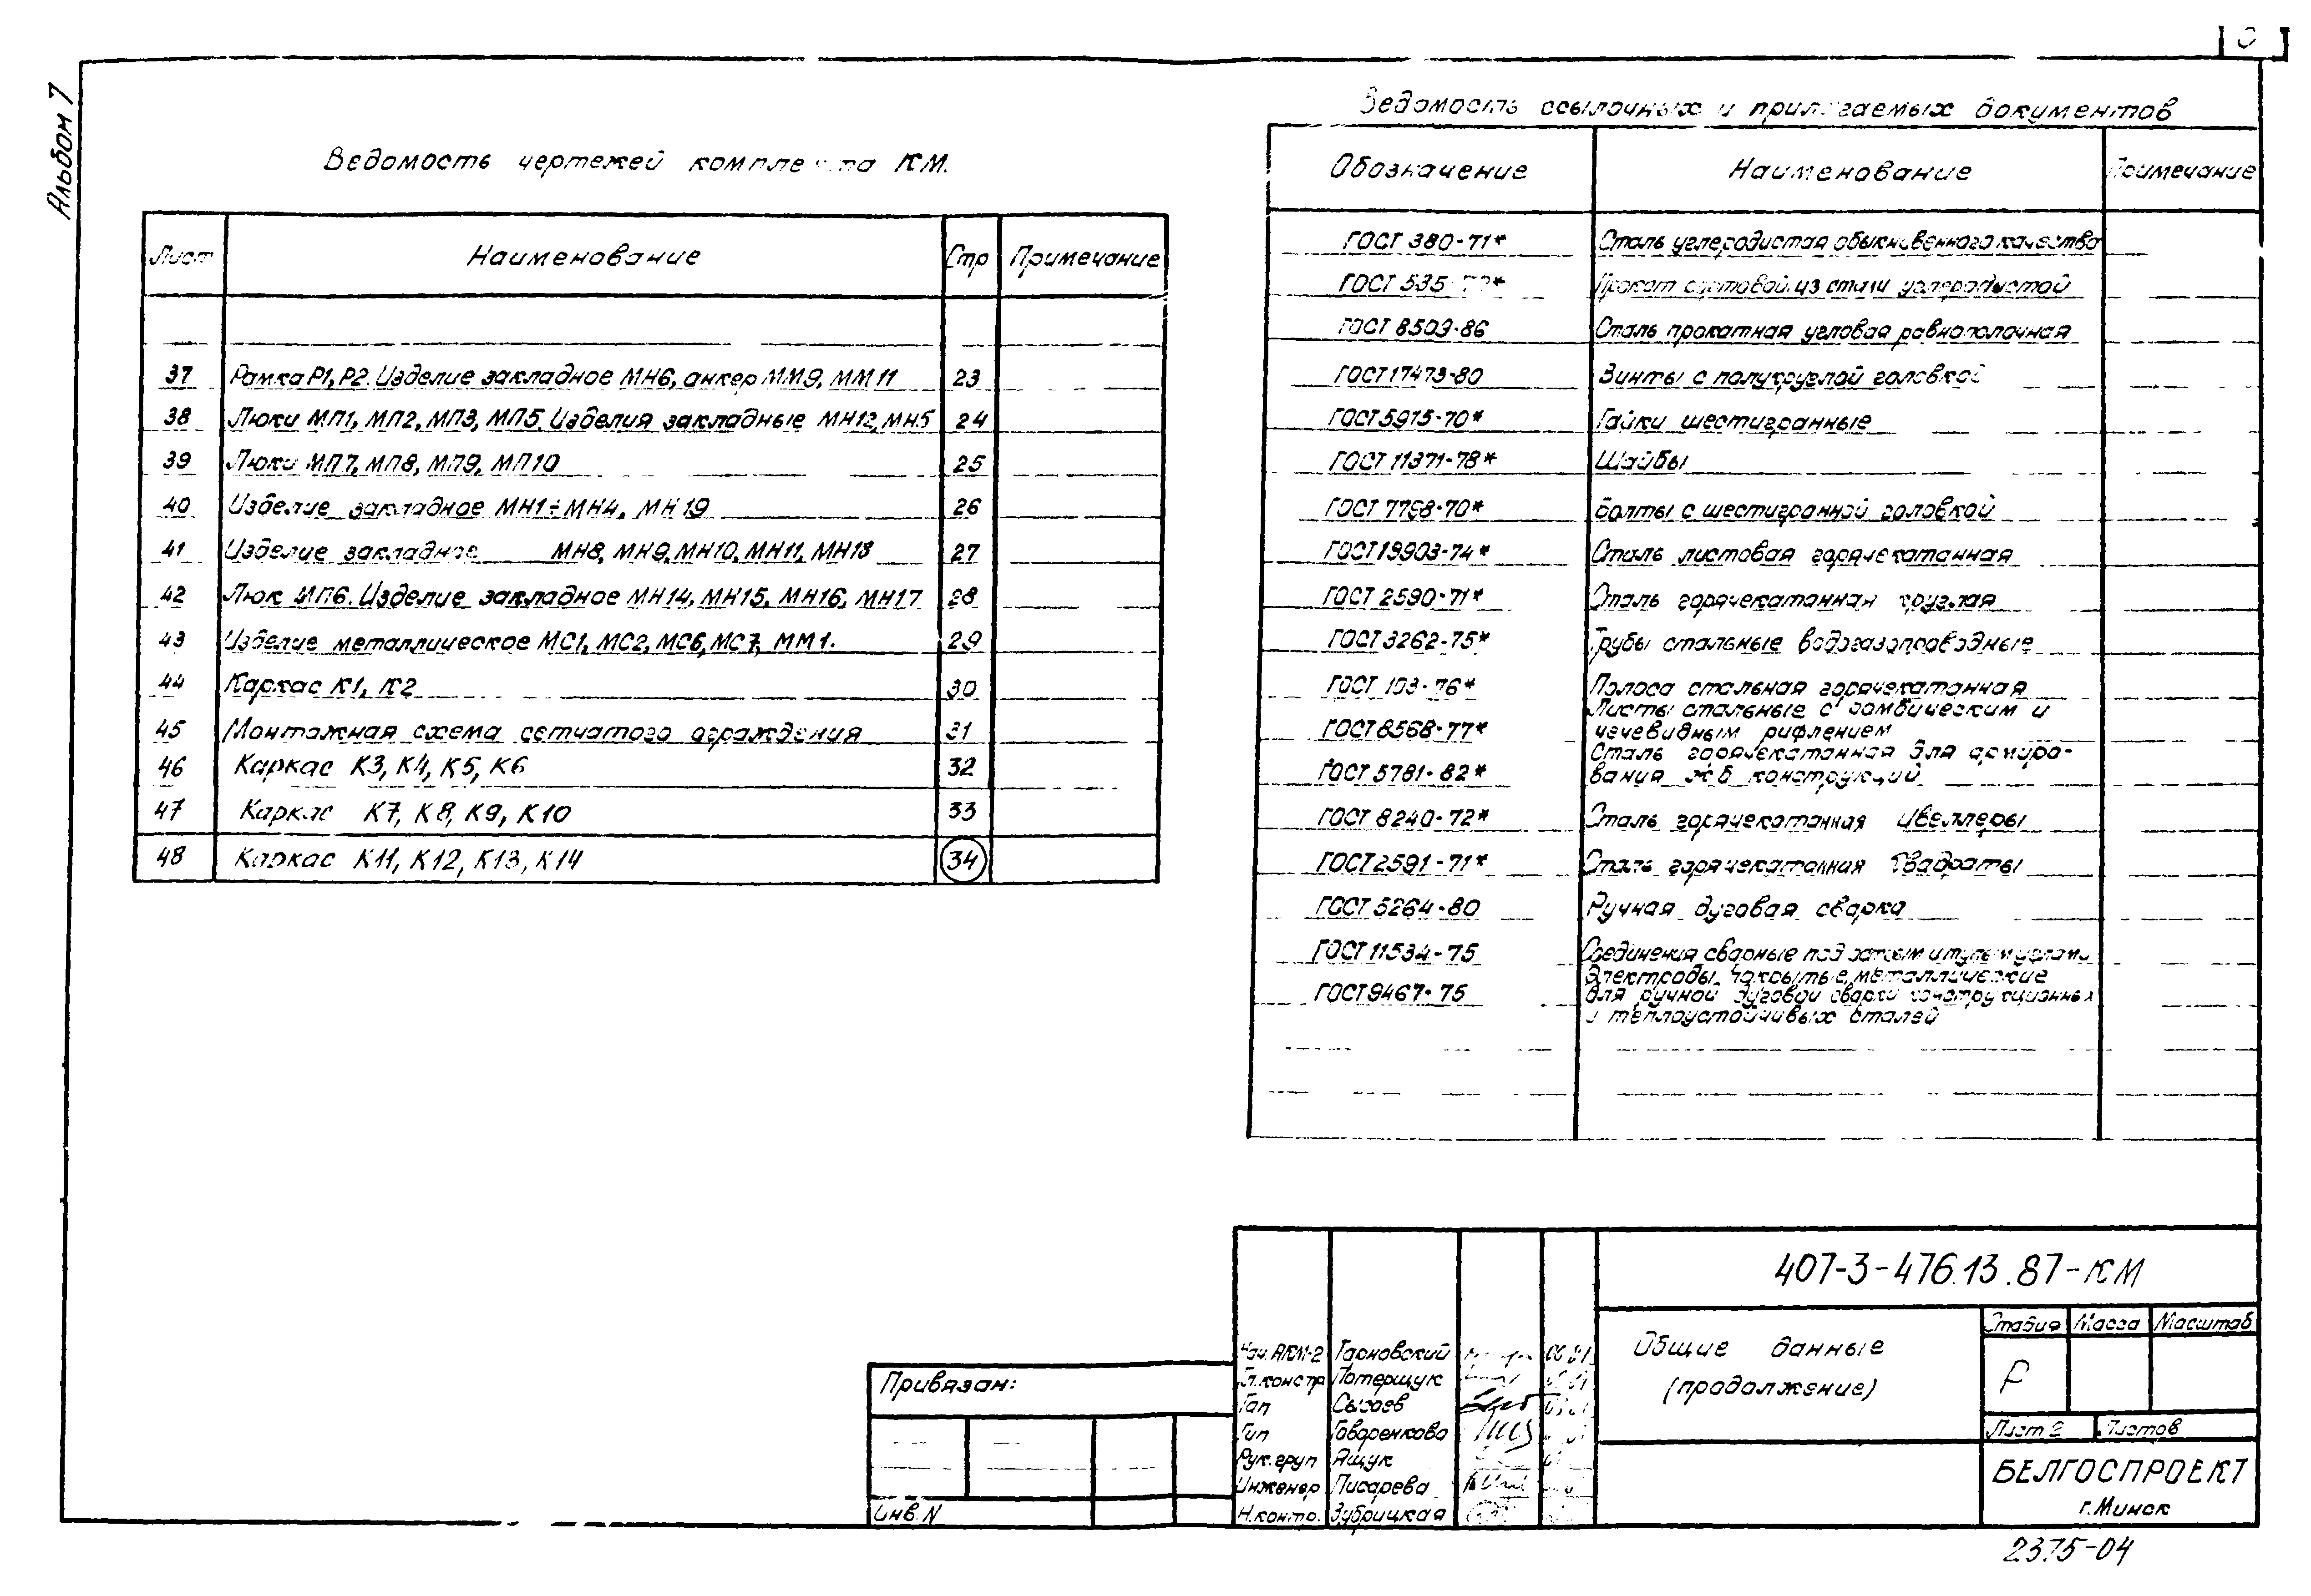 Альбом 7
Ведомость чертежей КМ.
Лист Наименование Стр Примечание
37 Рамка Р1, Р2. Изделие закладное МН6, анкер ММ9, ММ11 23
38 Люки МП1, МП2, МП3, МП5. Изделия закладные МН12, МН5 24
39 Люки МП7, МП8, МП9, МП10 25
40 Изделие закладное МН1÷МН4, МН19 26
41 Изделие закладное МН8, МН9, МН10, МН11, МН18 27
42 Люк МП6. Изделие закладное МН14, МН15, МН16, МН17 28
43 Изделие металлическое МС1, МС2, МС6, МС7, ММ1. 29
44 Каркас К1, К2 30
45 Монтажная схема сетчатого ограждения 31
46 Каркас К3, К4, К5, К6 32
47 Каркас К7, К8, К9, К10 33
48 Каркас К11, К12, К13, К14 34
Ведомость ссылочных и прилагаемых документов
Обозначение Наименование Примечание
ГОСТ 380-71* Сталь углеродистая обыкновенного качества
ГОСТ Прокат сортовой из стали углеродистой
ГОСТ 8509-86 Сталь прокатная угловая равнополочная
ГОСТ 17473-80 Винты с полукруглой головкой
ГОСТ 5915-70* Гайки шестигранные
ГОСТ 11371-78* Шайбы
ГОСТ 7798-70* Болты с шестигранной головкой
ГОСТ 19903-74* Сталь листовая горячекатанная
ГОСТ 2590-71* Сталь горячекатанная круглая
ГОСТ 3262-75* Трубы стальные водогазопроводные
ГОСТ 103-76* Полоса стальная горячекатанная
ГОСТ 8568-77* Листы стальные с ромбическим и
чечевидным рифлением
ГОСТ 5781-82* Сталь горячекатанная для армиро-
вания ж.б конструкций
ГОСТ 8240-72* Сталь горячекатанная Швеллеры
ГОСТ 2591-71* Сталь горячекатанная Квадраты
ГОСТ 5264-80 Ручная дуговая сварка
ГОСТ 11534-75 Соединения сварные под
ГОСТ 9467-75 Электроды металлические
для ручной дуговой сварки конструкционных
и теплоустойчивых сталей
407-3-476.13.87-КМ
Общие данные
(продолжение)
Стадия Масса Масштаб
Р
Лист 2 Листов
БЕЛГОСПРОЕКТ
г.Минск
Нач. АКМ-2 Тарновский
Гл.констр Потерщук
Гап Сысоев
Гип Говоренкова
Рук.груп Ящук
Инженер Писарева
Н.контр. Зубрицкая
Привязан:
Инв.N
2375-04